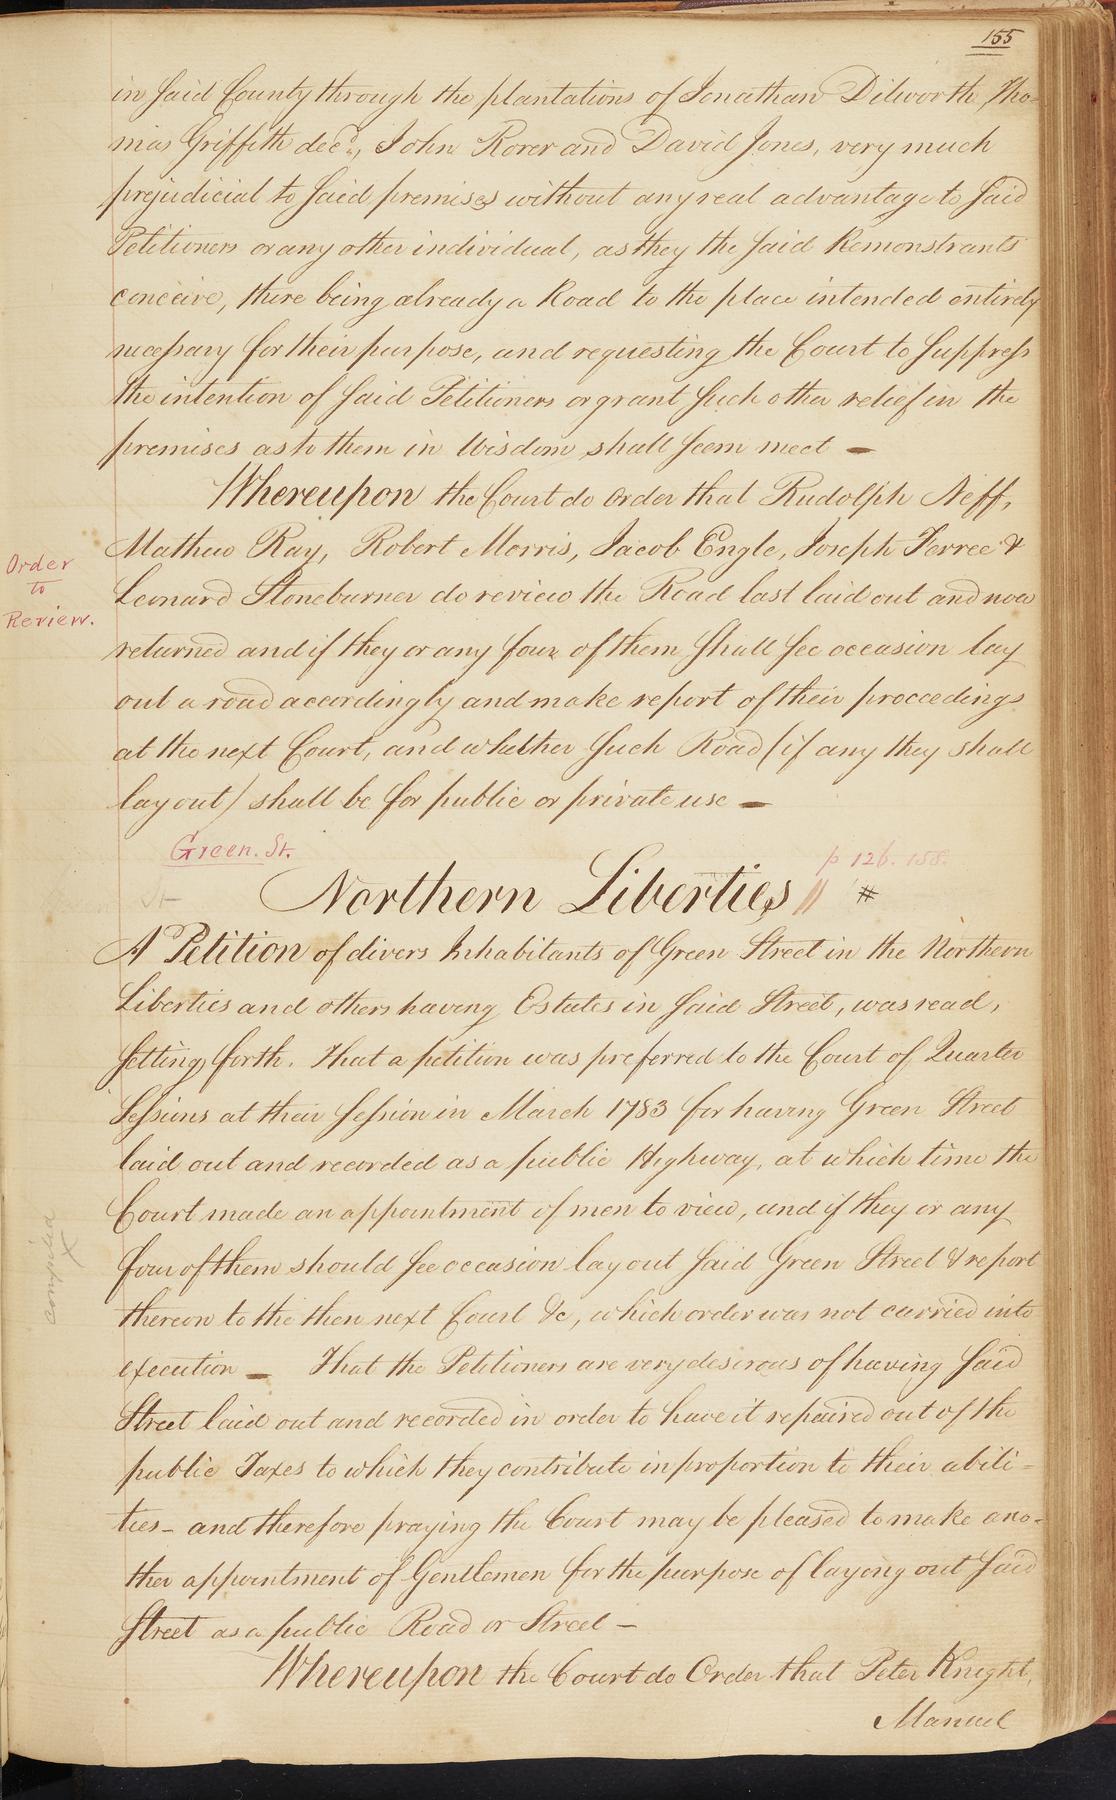 155
in said County through the plantations of Jonathan Dilworth, Tho-
mas Griffith decd., John Rorer and David Jones, very much
prejudicial to said premises without any real advantage to said
Petitioners or any other individual, as they the said Remonstrants
conceive, there being already a Road to the place intended entirely
necessary for their purpose, and requesting the Court to suppress
the intention of said Petitioners or grant such other relief in the
premises as to them in Wisdom shall seem meet —
Whereupon the Court do order that Rudolph Neff,
Mathew Ray, Robert Morris, Jacob Engle, Joseph Ferree &
Order
to
Review.
Leonard Stoneburner do review the Road last laid out and now
returned and if they or any four of them shall see occasion lay
out a road accordingly and make report of their proceedings
at the next Court, and whether such Road (if any they shall
lay out) shall be for public or private use —
Green. St.
p 126. 158.
St
Northern Liberties // #
A Petition of divers Inhabitants of Green Street in the Northern
Liberties and others having Estates in said Street, was read,
setting forth. That a petition was preferred to the Court of Quarter
Sessions at their session in March 1783 for having Green Street
laid out and recorded as a public Highway, at which time the
Court made an appointment of men to view, and if they or any
four of them should see occasion lay out said Green Street & report
thereon to the then next Court &c, which order was not carried into
execution — That the Petitioners are very desirous of having said
Street laid out and recorded in order to have it repaired out of the
public Taxes to which they contribute in proportion to their abili-
ties - and therefore praying the Court may be pleased to make ano-
ther appointment of Gentlemen for the purpose of laying out said
Street as a public Road or Street —
Whereupon the Court do Order that Peter Knight,
Manuel